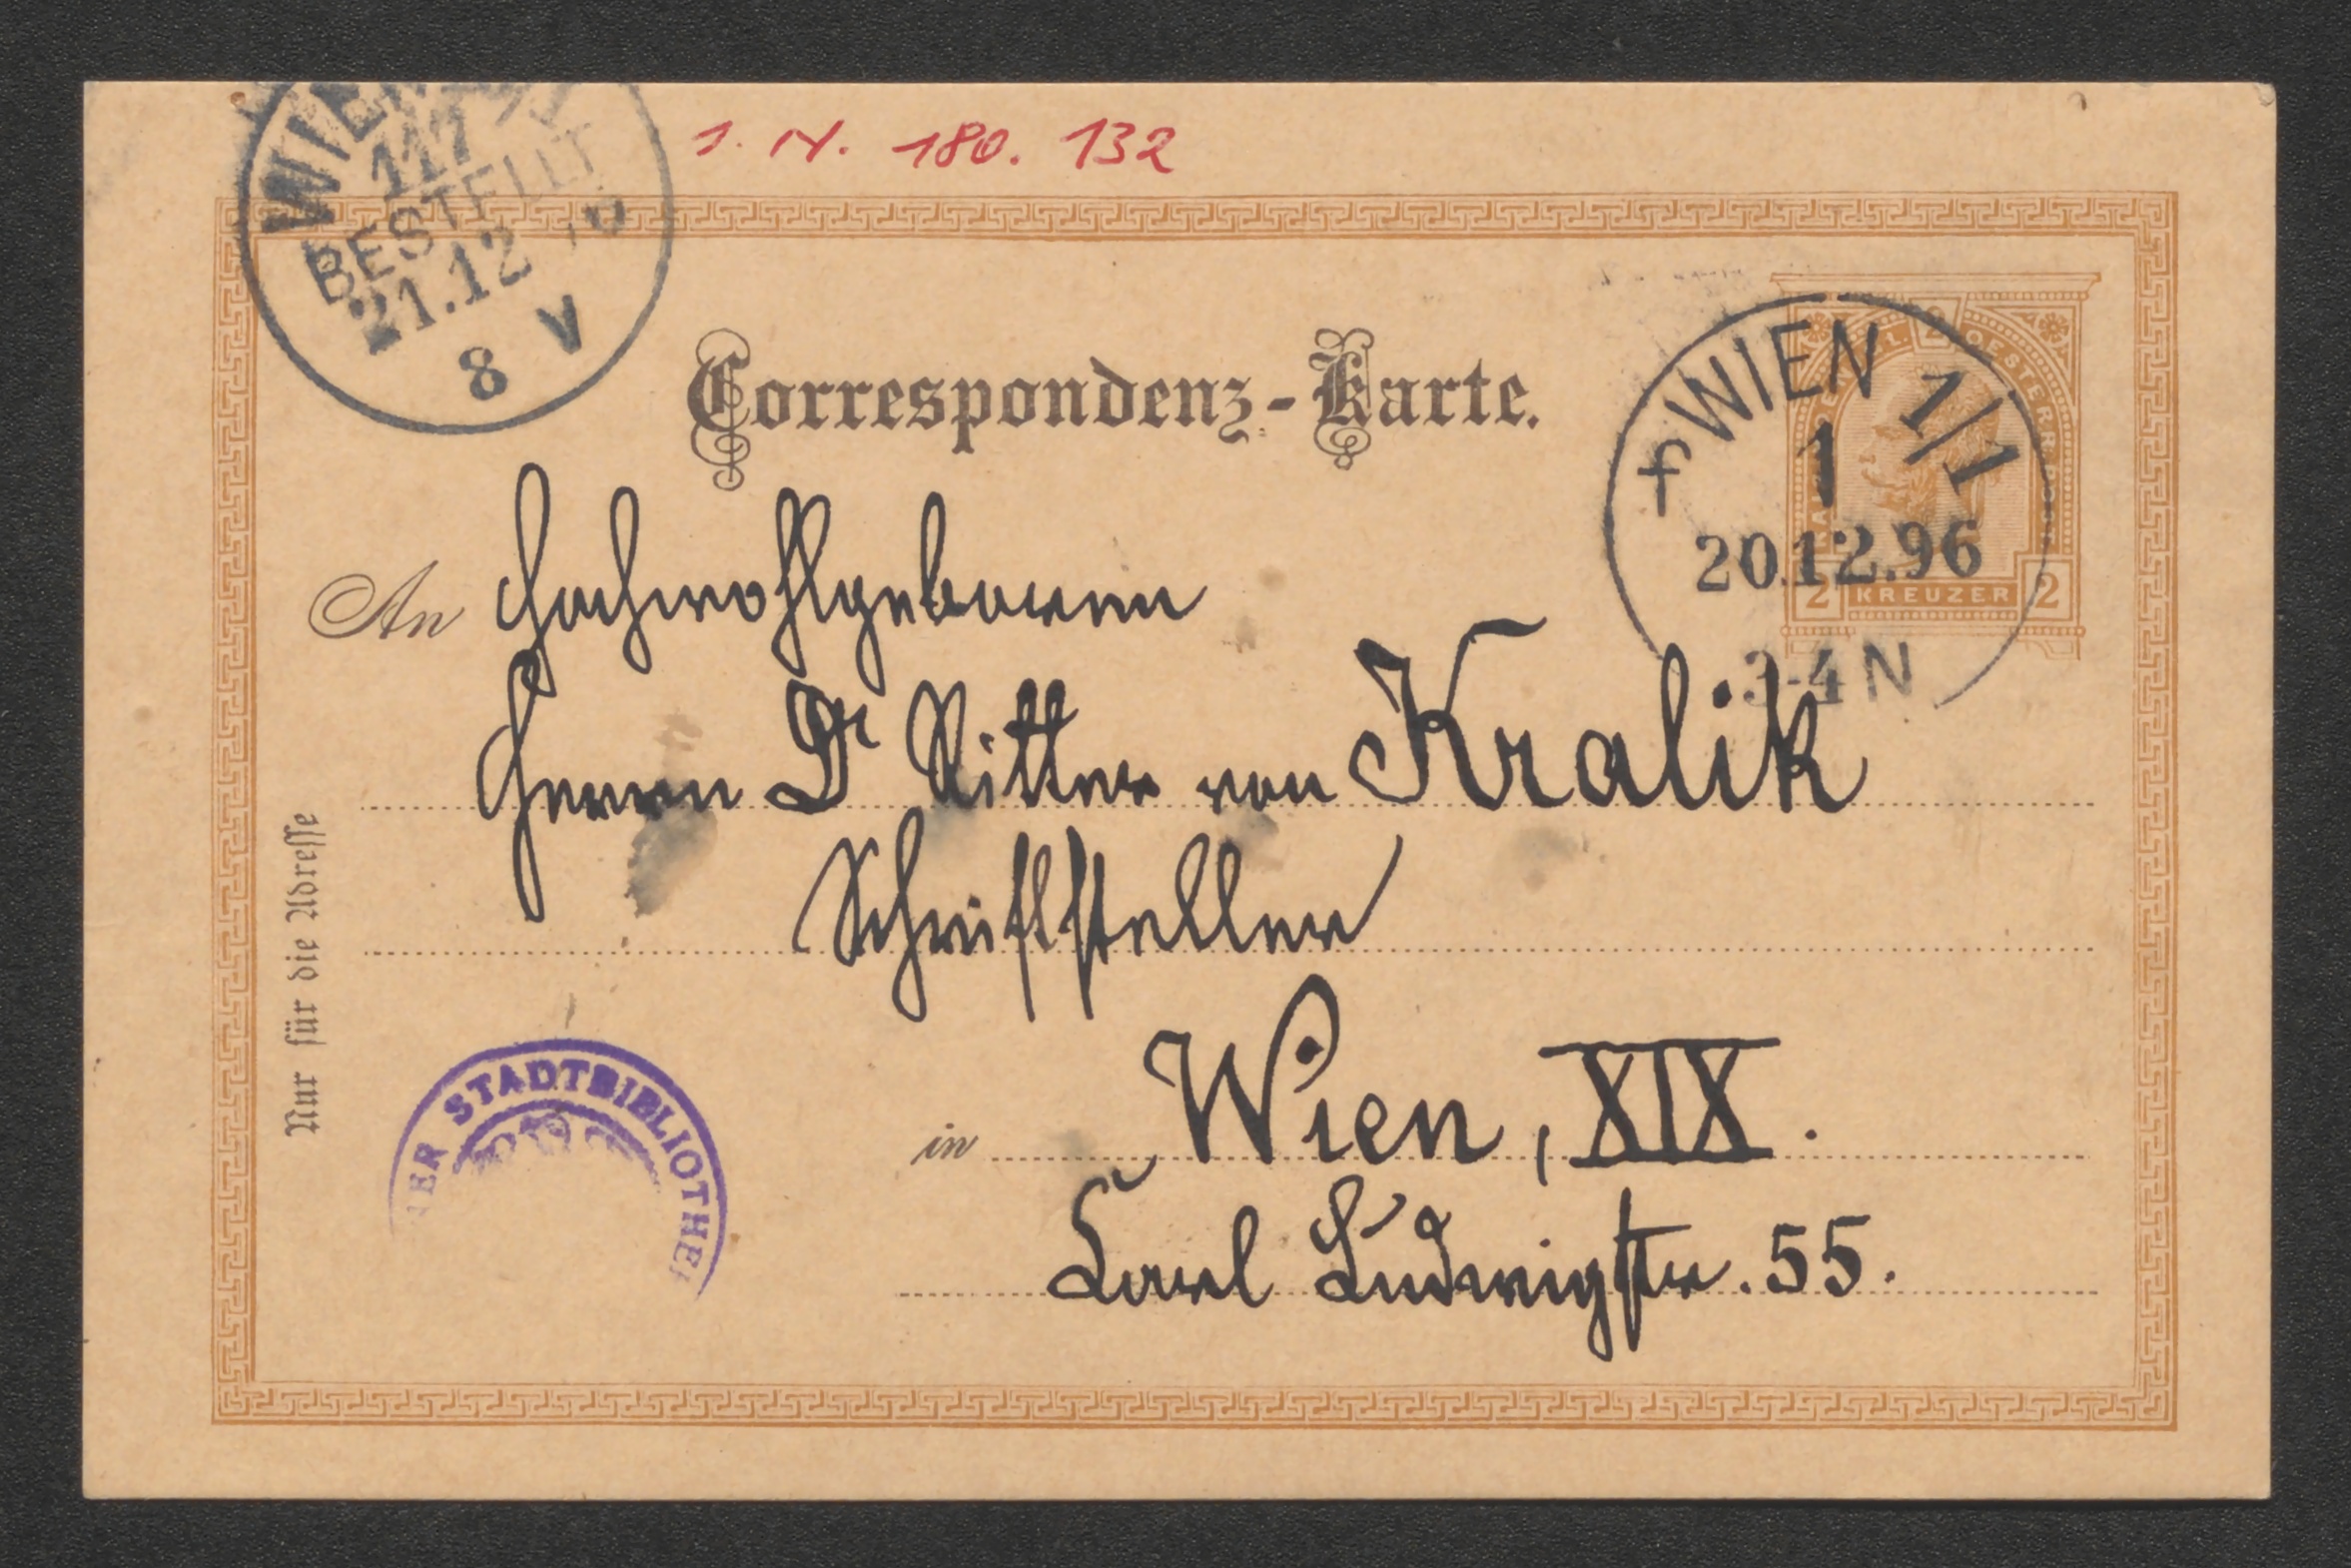 J. N. 180. 132
WIEN
117
BESTELLT
21.12
8 V
Correspondenz-Karte.
WIEN 1/1
1
20.12.96
3-4 N
OESTERR
2 KREUZER 2
An Hochwohlgeboren
Herrn Dr Ritter von Kralik
Schriftsteller
in Wien, XIX.
Carl Ludwigstr. 55.
Nur für die Adresse
STADTBIBLIOTHE